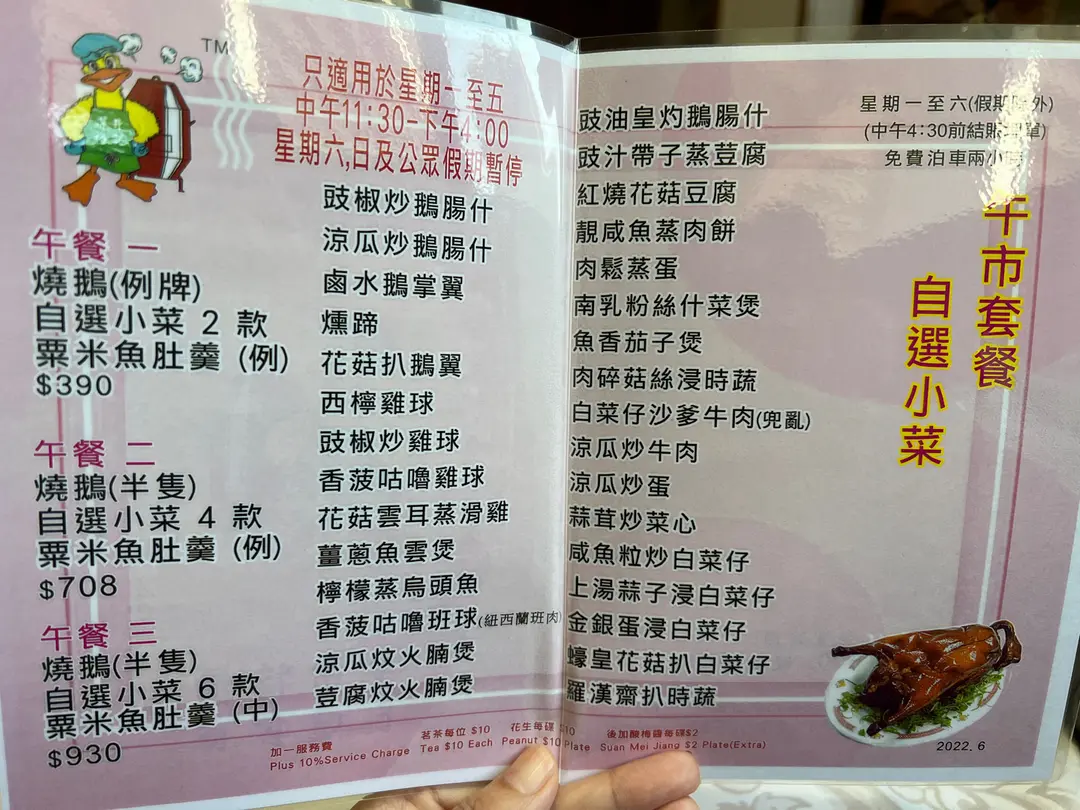 TM
只適用於星期一至五
中午11:30-下午4:00
星期六,日及公眾假期暫停
午餐 一
燒鵝(例牌)
自選小菜 2 款
粟米魚肚羹 (例)
$390
午餐 二
燒鵝(半隻)
自選小菜 4 款
粟米魚肚羹 (例)
$708
午餐 三
燒鵝(半隻)
自選小菜 6 款
粟米魚肚羹 (中)
$930
豉椒炒鵝腸什
涼瓜炒鵝腸什
鹵水鵝掌翼
燻蹄
花菇扒鵝翼
西檸雞球
豉椒炒雞球
香菠咕嚕雞球
花菇雲耳蒸滑雞
薑蔥魚雲煲
檸檬蒸烏頭魚
香菠咕嚕班球(紐西蘭班肉)
涼瓜炆火腩煲
荳腐炆火腩煲
豉油皇灼鵝腸什
豉汁帶子蒸荳腐
紅燒花菇豆腐
靚咸魚蒸肉餅
肉鬆蒸蛋
南乳粉絲什菜煲
魚香茄子煲
肉碎菇絲浸時蔬
白菜仔沙爹牛肉(兜亂)
涼瓜炒牛肉
涼瓜炒蛋
蒜茸炒菜心
咸魚粒炒白菜仔
上湯蒜子浸白菜仔
金銀蛋浸白菜仔
蠔皇花菇扒白菜仔
羅漢齋扒時蔬
星期一至六(假期除外)
(中午4:30前結賬 單)
免費泊車兩小時
午市套餐
自選小菜
加一服務費 茗茶每位 $10 花生每碟 $10 後加酸梅醬每碟$2
Plus 10%Service Charge Tea $10 Each Peanut $10 Plate Suan Mei Jiang $2 Plate(Extra)
2022.6